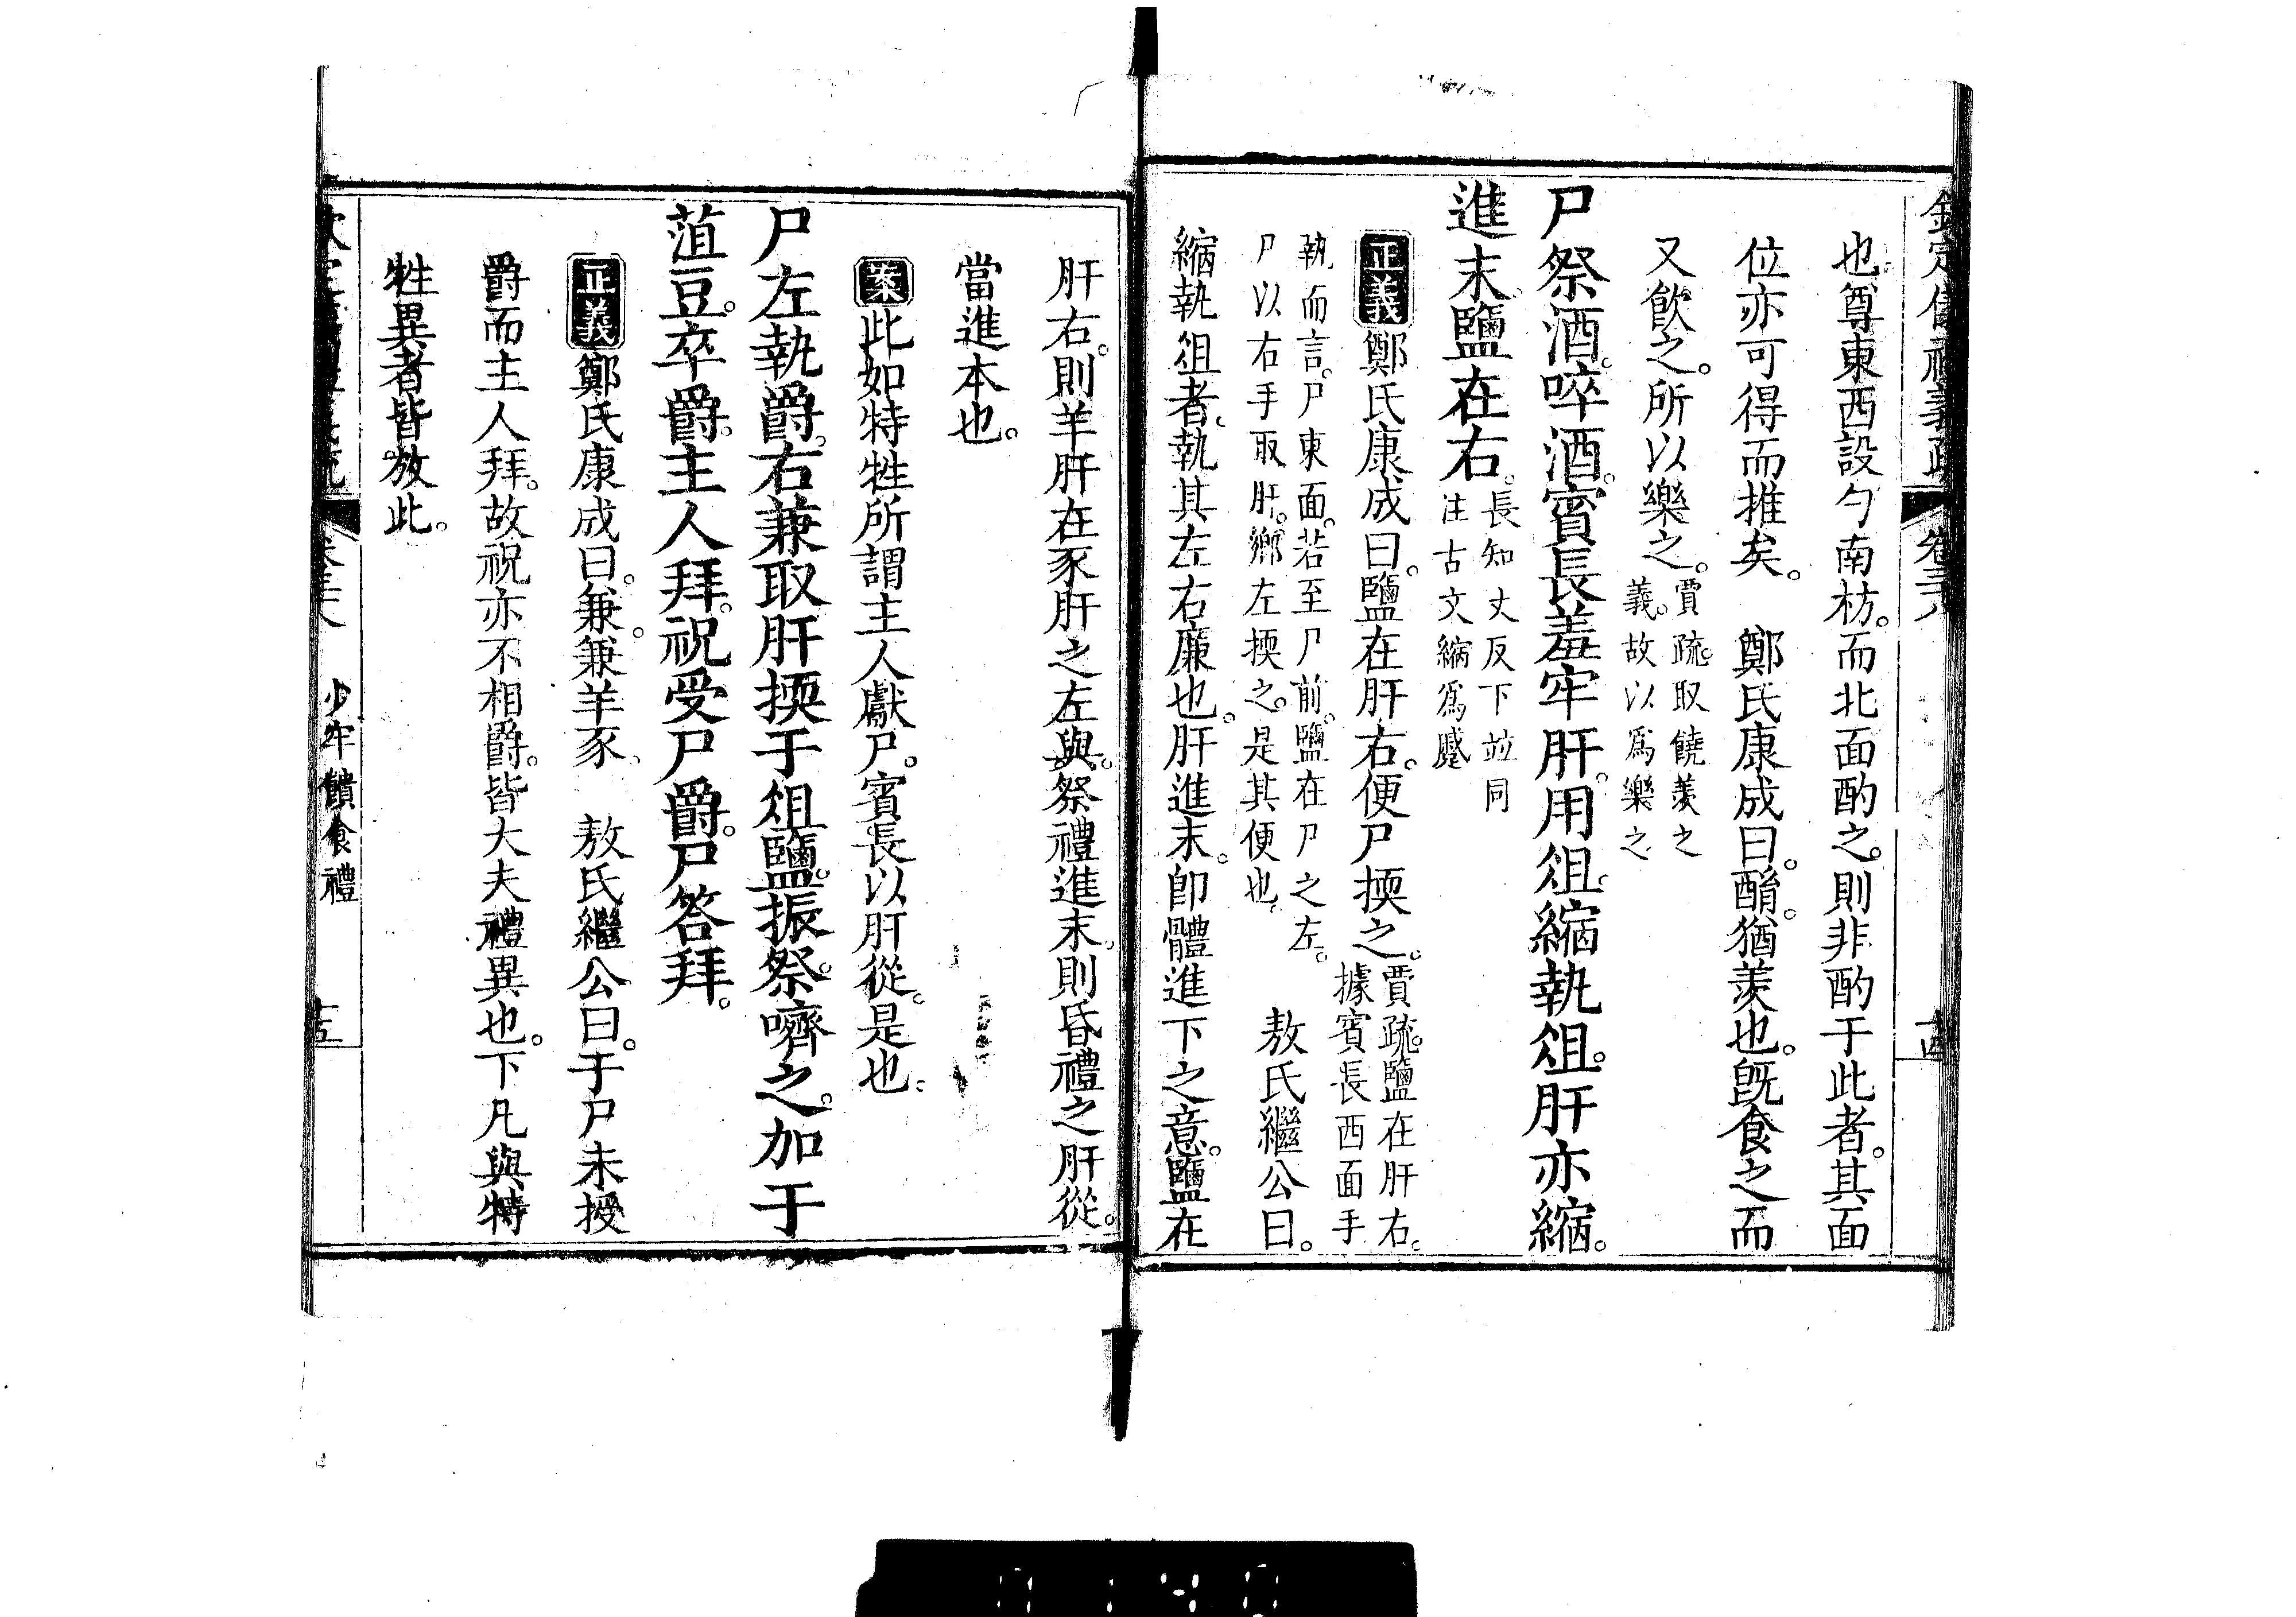 欽定儀禮義疏 卷三八 十四
也。尊東西設勺南枋。而北面酌之。則非酌于此者。其面
位亦可得而推矣。 鄭氏康成曰。酳。猶羨也。旣食之而
又飮之。所以樂之。賈疏。取饒羨之
義。故以爲樂之
尸祭酒。啐酒。賓長羞牢肝。用俎。縮執俎。肝亦縮。
進末。鹽在右。長知丈反下竝同
注古文縮爲蹙
正義鄭氏康成曰。鹽在肝右。便尸擩之。賈疏。鹽在肝右。
據賓長西面手
執而言。尸東面。若至尸前。鹽在尸之左。
尸以右手取肝。鄉左擩之。是其便也。 敖氏繼公曰。
縮執俎者。執其左右廉也。肝進末。卽體進下之意。鹽在
肝右。則羊肝在豕肝之左與。祭禮進末。則昏禮之肝從。
當進本也。
案此如特牲所謂主人獻尸。賓長以肝從。是也。
尸左執爵。右兼取肝擩于俎鹽。振祭。嚌之。加于
菹豆。卒爵。主人拜。祝受尸爵。尸答拜。
正義鄭氏康成曰。兼。兼羊豕。 敖氏繼公曰。于尸未授
爵而主人拜。故祝亦不相爵。皆大夫禮異也。下凡與特
牲異者皆放此。
少牢饋食禮 十五